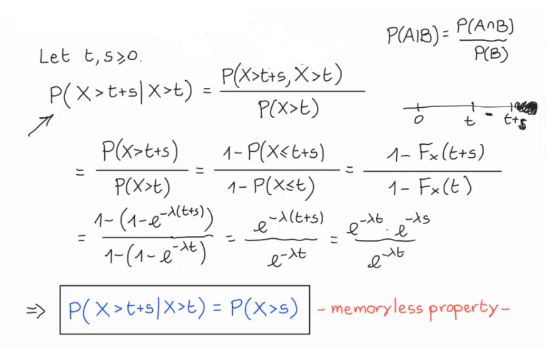 P(A|B) = P(A∩B) / P(B)
Let t, s ⩾ 0.
P(X>t+s|X>t) = P(X>t+s, X>t) / P(X>t)
0 t t+s
= P(X>t+s) / P(X>t) = 1-P(X⩽t+s) / 1-P(X⩽t) = 1-Fₓ(t+s) / 1-Fₓ(t)
= 1-(1-e^{-λ(t+s)}) / 1-(1-e^{-λt}) = e^{-λ(t+s)} / e^{-λt} = e^{-λt} · e^{-λs} / e^{-λt}
⇒ P(X>t+s|X>t) = P(X>s) - memoryless property -